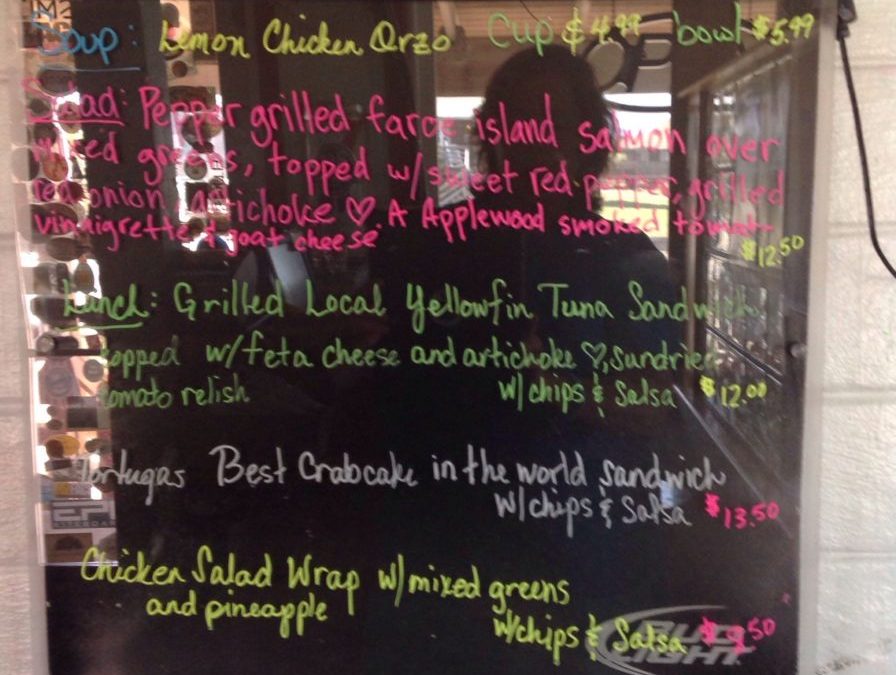 Soup: Lemon Chicken Orzo Cup $4.99 bowl $5.99
Salad: Pepper grilled faroe island salmon over
mixed greens, topped w/sweet red pepper, grilled
red onion, artichoke ♡. A Applewood smoked tomat
vinaigrette & goat cheese
$12.50
Lunch: Grilled Local Yellowfin Tuna Sandwich
topped w/feta cheese and artichoke ♡, sundried
tomato relish w/chips & Salsa $12.00
Tortugas Best Crabcake in the world sandwich
w/chips & Salsa $13.50
Chicken Salad Wrap w/mixed greens
and pineapple
w/chips & Salsa $9.50
BUD
LIGHT